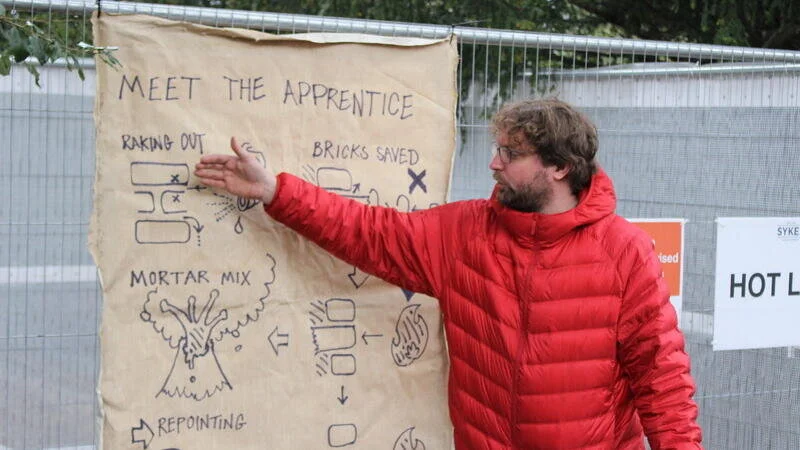 MEET THE APPRENTICE
RAKING OUT
BRICKS SAVED
MORTAR MIX
REPOINTING
SYKE
HOT L